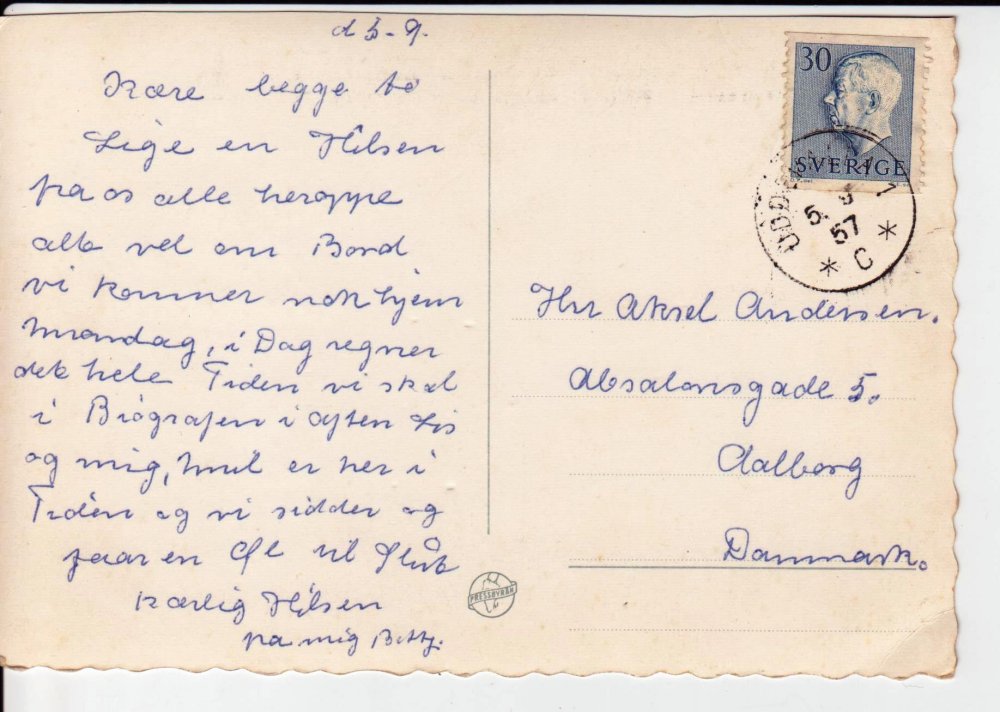 d 5-9.
Kære begge to
Lige en Hilsen
fra os alle heroppe
alt vel om Bord
vi kommer nok hjem
Mandag, i Dag regner
det hele Tiden vi skal
i Biografen i Aften Lis
og mig, er her i
Tiden og vi sidder og
faar en Øl til Slut
Kærlig Hilsen
fra mig Betty.
30
SVERIGE
UDDEVALLA 1
5. 9
57
* C *
Hrr Aksel Andersen.
Absalonsgade 5.
Aalborg
Danmark.
PRESSBYRÅN